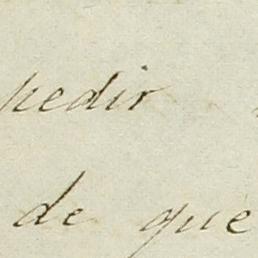 pedir
de que